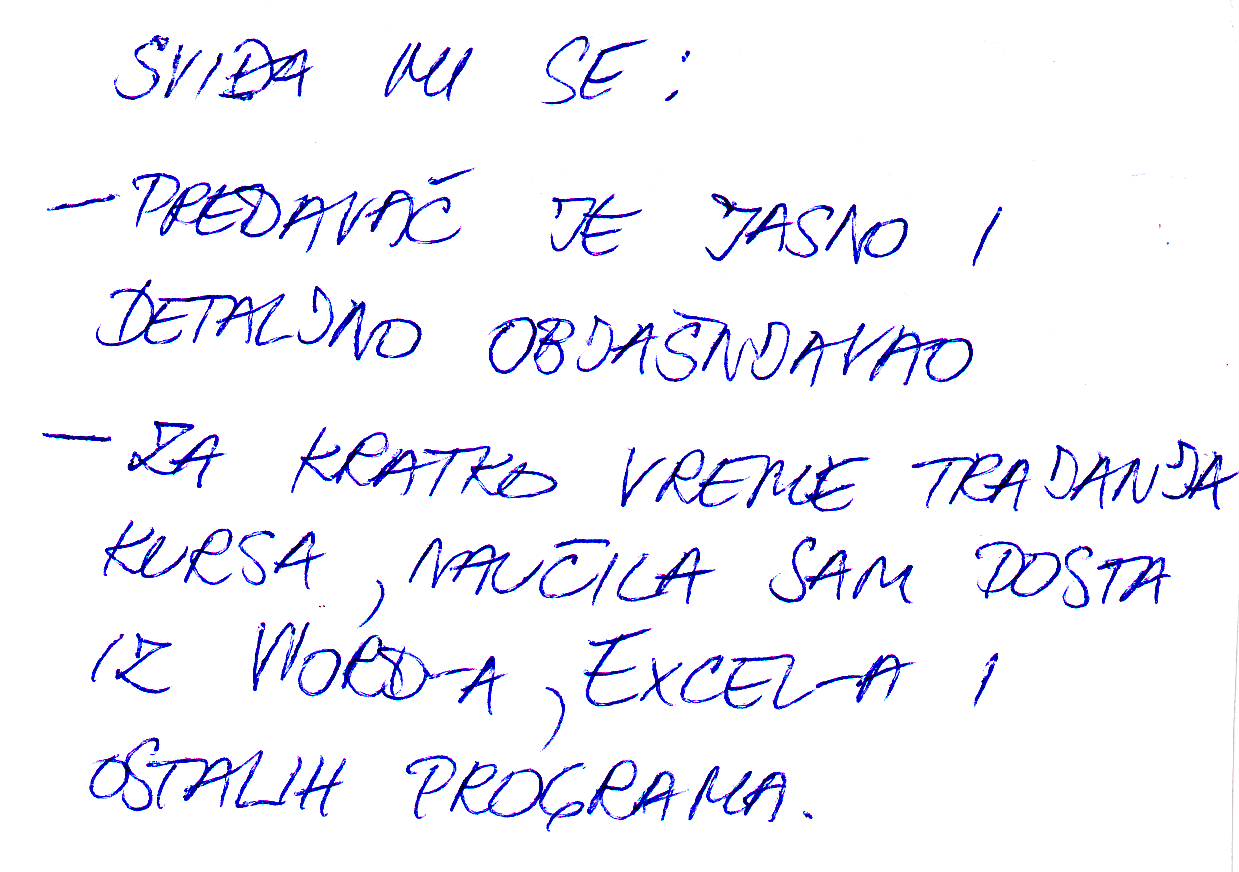 SVIĐA MI SE:
- PREDAVAČ JE JASNO I
DETALJNO OBJAŠNJAVAO
- ZA KRATKO VREME TRAJANJA
KURSA, NAUČILA SAM DOSTA
IZ WORD-A, EXCEL-A I
OSTALIH PROGRAMA.